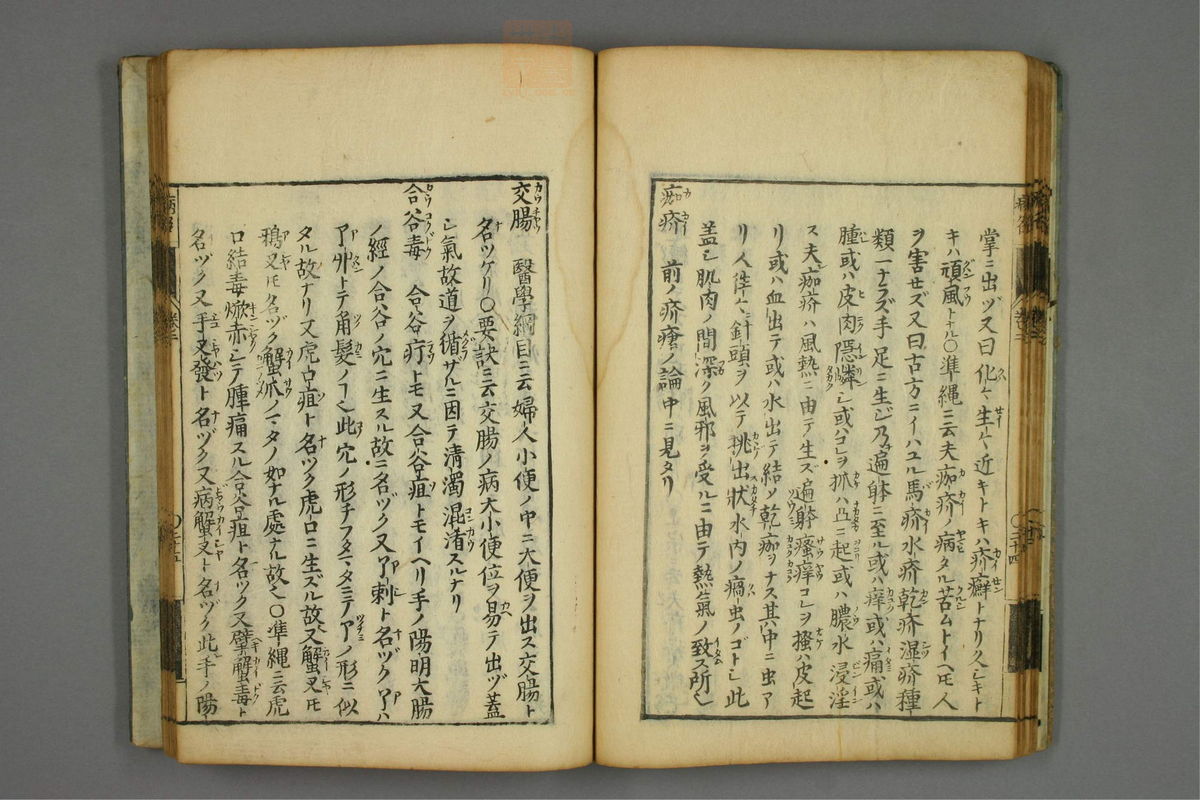 掌ニ出ヅ又曰化〆生〆近キトキハ疥癬トナリ久シキト
キハ頑風トナル○準縄ニ云夫痂疥ノ病タル苦ムトイヘ𪜈人
ヲ害セズ又曰古方ニイハユル馬疥水疥乾疥湿疥種
類一ナラズ手足ニ生ジ乃遍躰ニ至ル或ハ痒或ハ痛或ハ
腫或ハ皮肉隠𤺋シ或ハコレヲ抓ハ凸ニ起或ハ膿水浸淫
ス夫痂疥ハ風熱ニ由テ生ズ遍躰瘙痒コレヲ搔ハ皮起
リ或ハ血出テ或ハ水出テ結ノ乾痂ヲナス其中ニ虫ア
リ人往〻針頭ヲ以テ挑出狀水内ノ虫ノゴトシ此
蓋シ肌肉ノ間深ク風邪ヲ受ルニ由テ熱氣ノ致ス所也
痂疥 前ノ疥瘡ノ論中ニ見タリ
交腸 醫學綱目ニ云婦人小便ノ中ニ大便ヲ出ス交腸ト
名ツケリ○要訣ニ云交腸ノ病大小便位ヲ易テ出ヅ蓋
シ氣故道ヲ循ザルニ因テ清濁混淆スルナリ
合谷毒 合谷疔トモ又合谷疽トモイヘリ手ノ陽明大腸
ノ經ノ合谷ノ穴ニ生スル故ニ名ヅク又丫刺ト名ヅク丫ハ
丱トテ角髮ノ此穴ノ形チフタマタニテ丫ノ形ニ似
タル故ナリ又虎口疽ト名ツク虎口ニ生ズル故又蟹叉𪜈
鴉叉𪜈名ヅク蟹爪ノマタノ如ナル處ナル故也○準縄ニ云虎
口結毒焮赤シテ腫痛スル合谷疽ト名ツク又擘蟹毒ト
名ヅク又手叉發ト名ヅク又病蟹叉ト名ヅク此手ノ陽